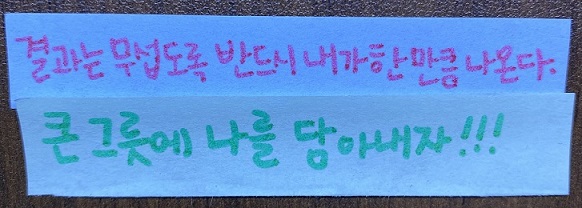 결과는 무섭도록 반드시 내가 한 만큼 나온다.
큰 그릇에 나를 담아내자!!!